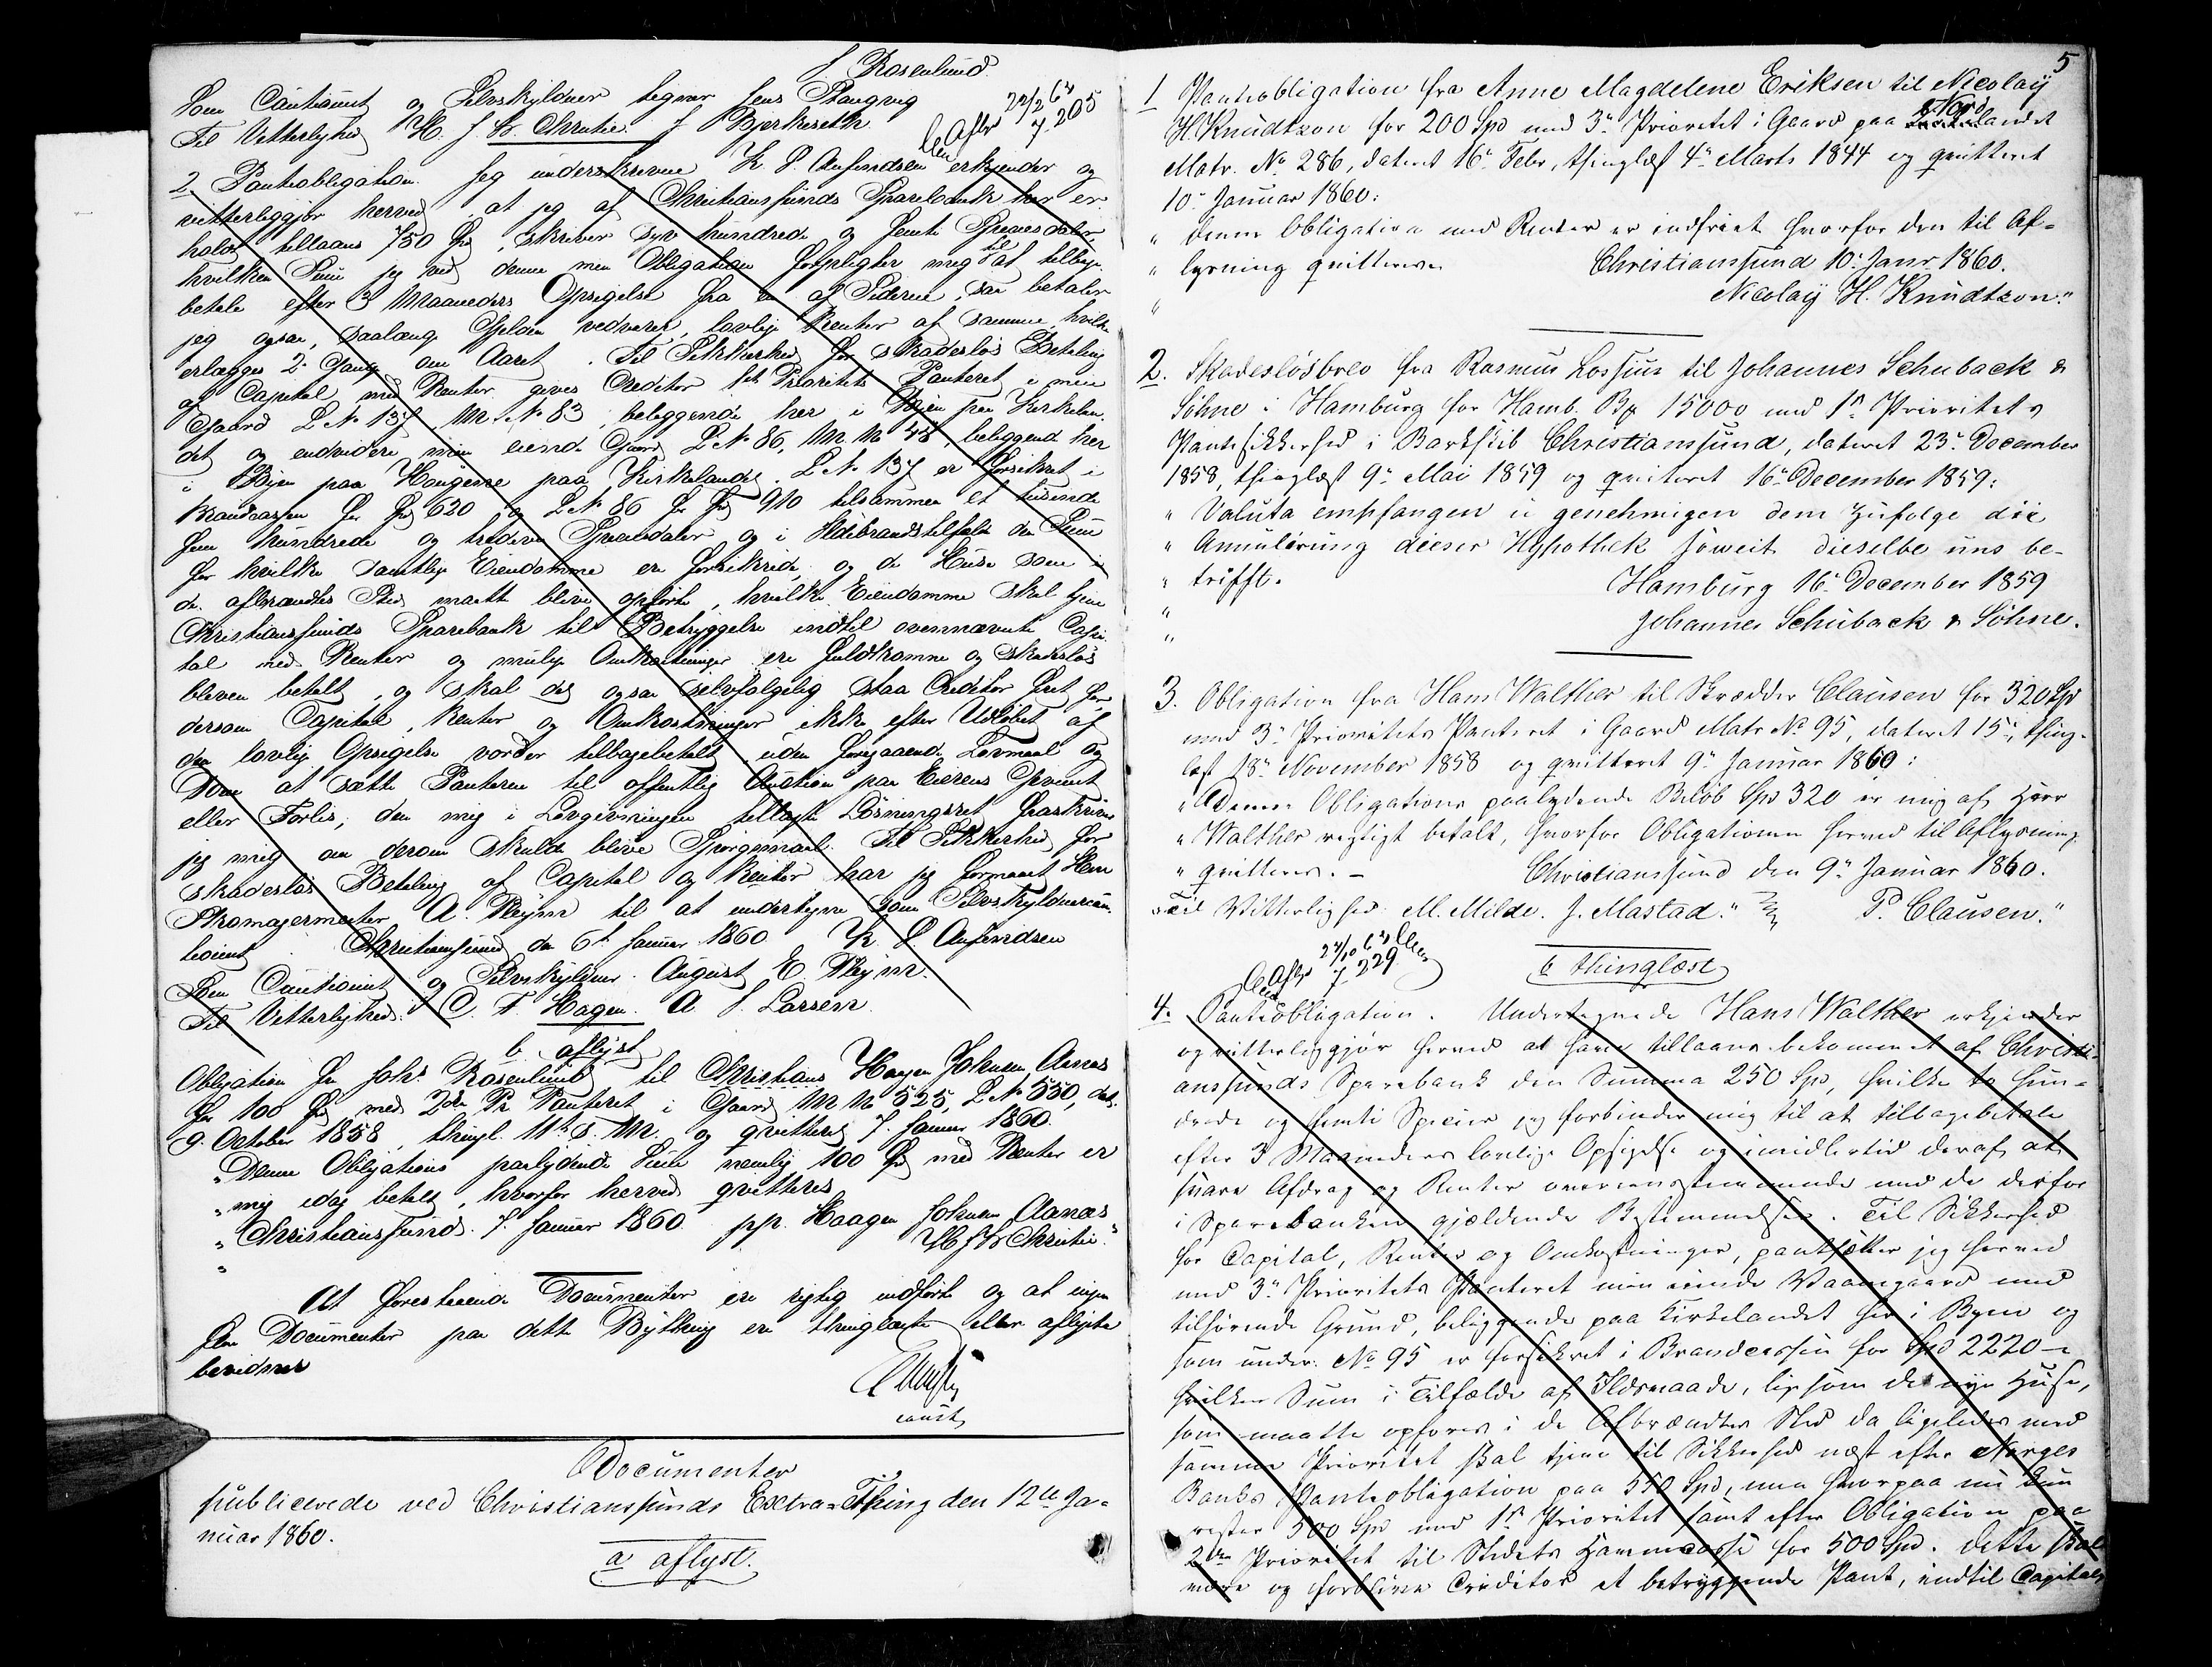 J. Rosenlund
Som Cautionist og Selvskyldner tegner Jens Stangvig
Til Vitterlighed H. J. B. Christie. J Bjerkeseth.
Afl. 22/2 63 7-205
2 Panteobligation. Jeg underskrevne K. P. Aufindsen erkjender og
vitterliggjör herved, at jeg af Christiansfunds Sparebank har er-
holdt tillaans 750 Spd, skriver syv hundrede og femti Speciesdaler,
hvilken Sum jeg ved denne min Obligation forpligter mig til at tilbage
betale efter 3 Maaneders Opsigelse fra en af Siderne, saa betaler
jeg ogsaa, saalænge Gjelden vedvarer, lovlige Renter af samme, hvilke
erlægges 2 Gange om Aaret. Til Sikkerhed for skadeslös Betaling
af Capital med Renter gives Creditor 1ste Prioritets Panteret i min
Gaard L. No 137, M. No 83, beliggende her i Byen paa Kirkelan-
det og endvidere min eiende Gaard L No 86, M. No 48, beliggende her
i Byen paa Haugene paa Kirkelandet. L. No 137 er forsikret i
Brandcassen for Spd 620 og L No 86 for Spd 910 tilsammen et tusinde
fem hundrede og tredive Speciesdaler og i Ildebrandstilfælde den Sum
for hvilke samtlige Eiendomme ere forsikrede, og de Huse som i
de afbrændtes Sted maatte blive opförte, hvilke Eiendomme skal tjene
Christiansfunds Sparebank til Betryggelse indtil ovennævnte Capi-
tal med Renter og mulige Omkostninger ere fuldkomne og skadeslös
bleven betalt, og skal det ogsaa selvfölgelig staa Creditor frit for
dersom Capital, Renter og Omkostninger ikke efter Udlöbet af
den lovlige Opsigelse vorder tilbagebetalt, uden foregaaende Lovmaal og
Dom at sætte Panterne til offentlig Auction paa Eierens Gevinst
eller Forlis; den mig i Lovgivningen tillagte Lösningsret fraskriver
jeg mig om derom skulde blive Spörgsmaal. Til Sikkerhed for
skadeslös Betaling af Capital og Renter har jeg formaaet Herr
Skomagermester A. Weyer til at undertegne som Selvskyldnercau-
tionist. Christiansund den 6te Januar 1860 K. P. Aufindsen
Som Cautionist og Selvskyldner. August E. Weyer.
Til Vitterlighed: C. F. Hagen. A. J. Larsen.
b. aflyst
Obligation fra Johs Rosenlund til Christians Haagen Johnsen Aanæs
for 100 Spd med 2den Pr. Panteret i Gaard M No 525, L No 550, dat.
9. October 1858, thingl. 11te s. M. og qvitteret 7. Januar 1860.
"Denne Obligations paalydende Sum nemlig 100 Spd med Renter er
"mig idag betalt, hvorfor herved qvitteres
"Christiansfund. 7 Januar 1860 pp. Haagen Johnsen Aanæs
" H J B Christie."
At forestaaende Documenter ere rigtig indförte og at ingen
flere Documenter paa dette Bytthing ere thinglæste eller aflyste
bevidner
const
Documenter
publicerede ved Christianssunds Extra-Thing den 12te Ja-
nuar 1860.
a aflyst.
5
1 Panteobligation fra Anne Magdelene Eriksen til Nicolaÿ
H. Knudtzon for 200 Spd med 3die Prioritet i Gaard paa Nordlandet
Matr. No 286, dateret 16de Febr, thinglæst 4de Marts 1844 og qvitteret
10de Januar 1860:
" Denne Obligation med Renter er indfriet hvorfor den til Af-
" lysning qvitteres. Christiansfund 10de Janr 1860.
" Nicolaÿ H. Knudtzon."
2. Skadeslösbrev fra Rasmus Lossius til Johannes Schuback &
Söhne i Hamburg for Hamb. Bp 15000 med 1ste Prioritets
Pantesikkerhed i Barkskib Christianssund, dateret 23de December
1858, thinglæst 9de Mai 1859 og qvitteret 16de December 1859:
" Valuta empfangen u genehmigen dem Zufolge die
" Annulirung dieser Hypothek soweit dieselbe uns be-
" trifft. Hamburg 16de December 1859
" Johannes Schuback & Söhne.
"
3. Obligation fra Hans Walther til Skrædder Clausen for 320 Spd
med 3die Prioritets Panteret i Gaard Matr No 95, dateret 15de, thing-
læst 18de November 1858 og qvitteret 9de Januar 1860:
" Denne Obligations paalydende Belöb Spd 320 er mig af Herr
" Walther rigtigt betalt, hvorfor Obligationen herved til Aflysning
" qvitteres. - Christianssund den 9de Januar 1860.
"Til Vitterlighed. M. Milde. J. Mastad." P. Clausen."
b thinglæst
Afl. 24/10 62 7-229
4. Panteobligation. Undertegnede Hans Walther erkjender
og vitterliggjör herved at have tillaans bekommet af Christi-
anssunds Sparebank den Summa 250 Spd, hvilke to hun-
drede og femti Specier jeg forbinder mig til at tilbagebetale
efter 3 Maaneders lovlige Opsigelse og imidlertid deraf at
svare Afdrag og Renter overensstemmende med de derfor
i Sparebanken gjældende Bestemmelser. Til Sikkerhed
for Capital, Renter og Omkostninger, pantsætter jeg herved
med 3die Prioritets Panteret min eiende Vaaningaard med
tilhörende Grund, beliggende paa Kirkelandet her i Byen og
som under No 95 er forsikret i Brandcassen for Spd 2220 -
hvilken Sum i Tilfælde af Ildsvaade, ligesom de nye Huse,
som maatte opföres i de Afbrændtes Sted da ligeledes med
samme Prioritet skal tjene til Sikkerhed næst efter Norges
Banks Panteobligation paa 550 Spd, men hvorpaa nu kun
rester 500 Spd med 1ste Prioritet samt efter Obligation paa
2den Prioritet til Stedets Havnecasse for 500 Spd. Dette skal
være og forblive Creditor et betryggende Pant, indtil Capital,